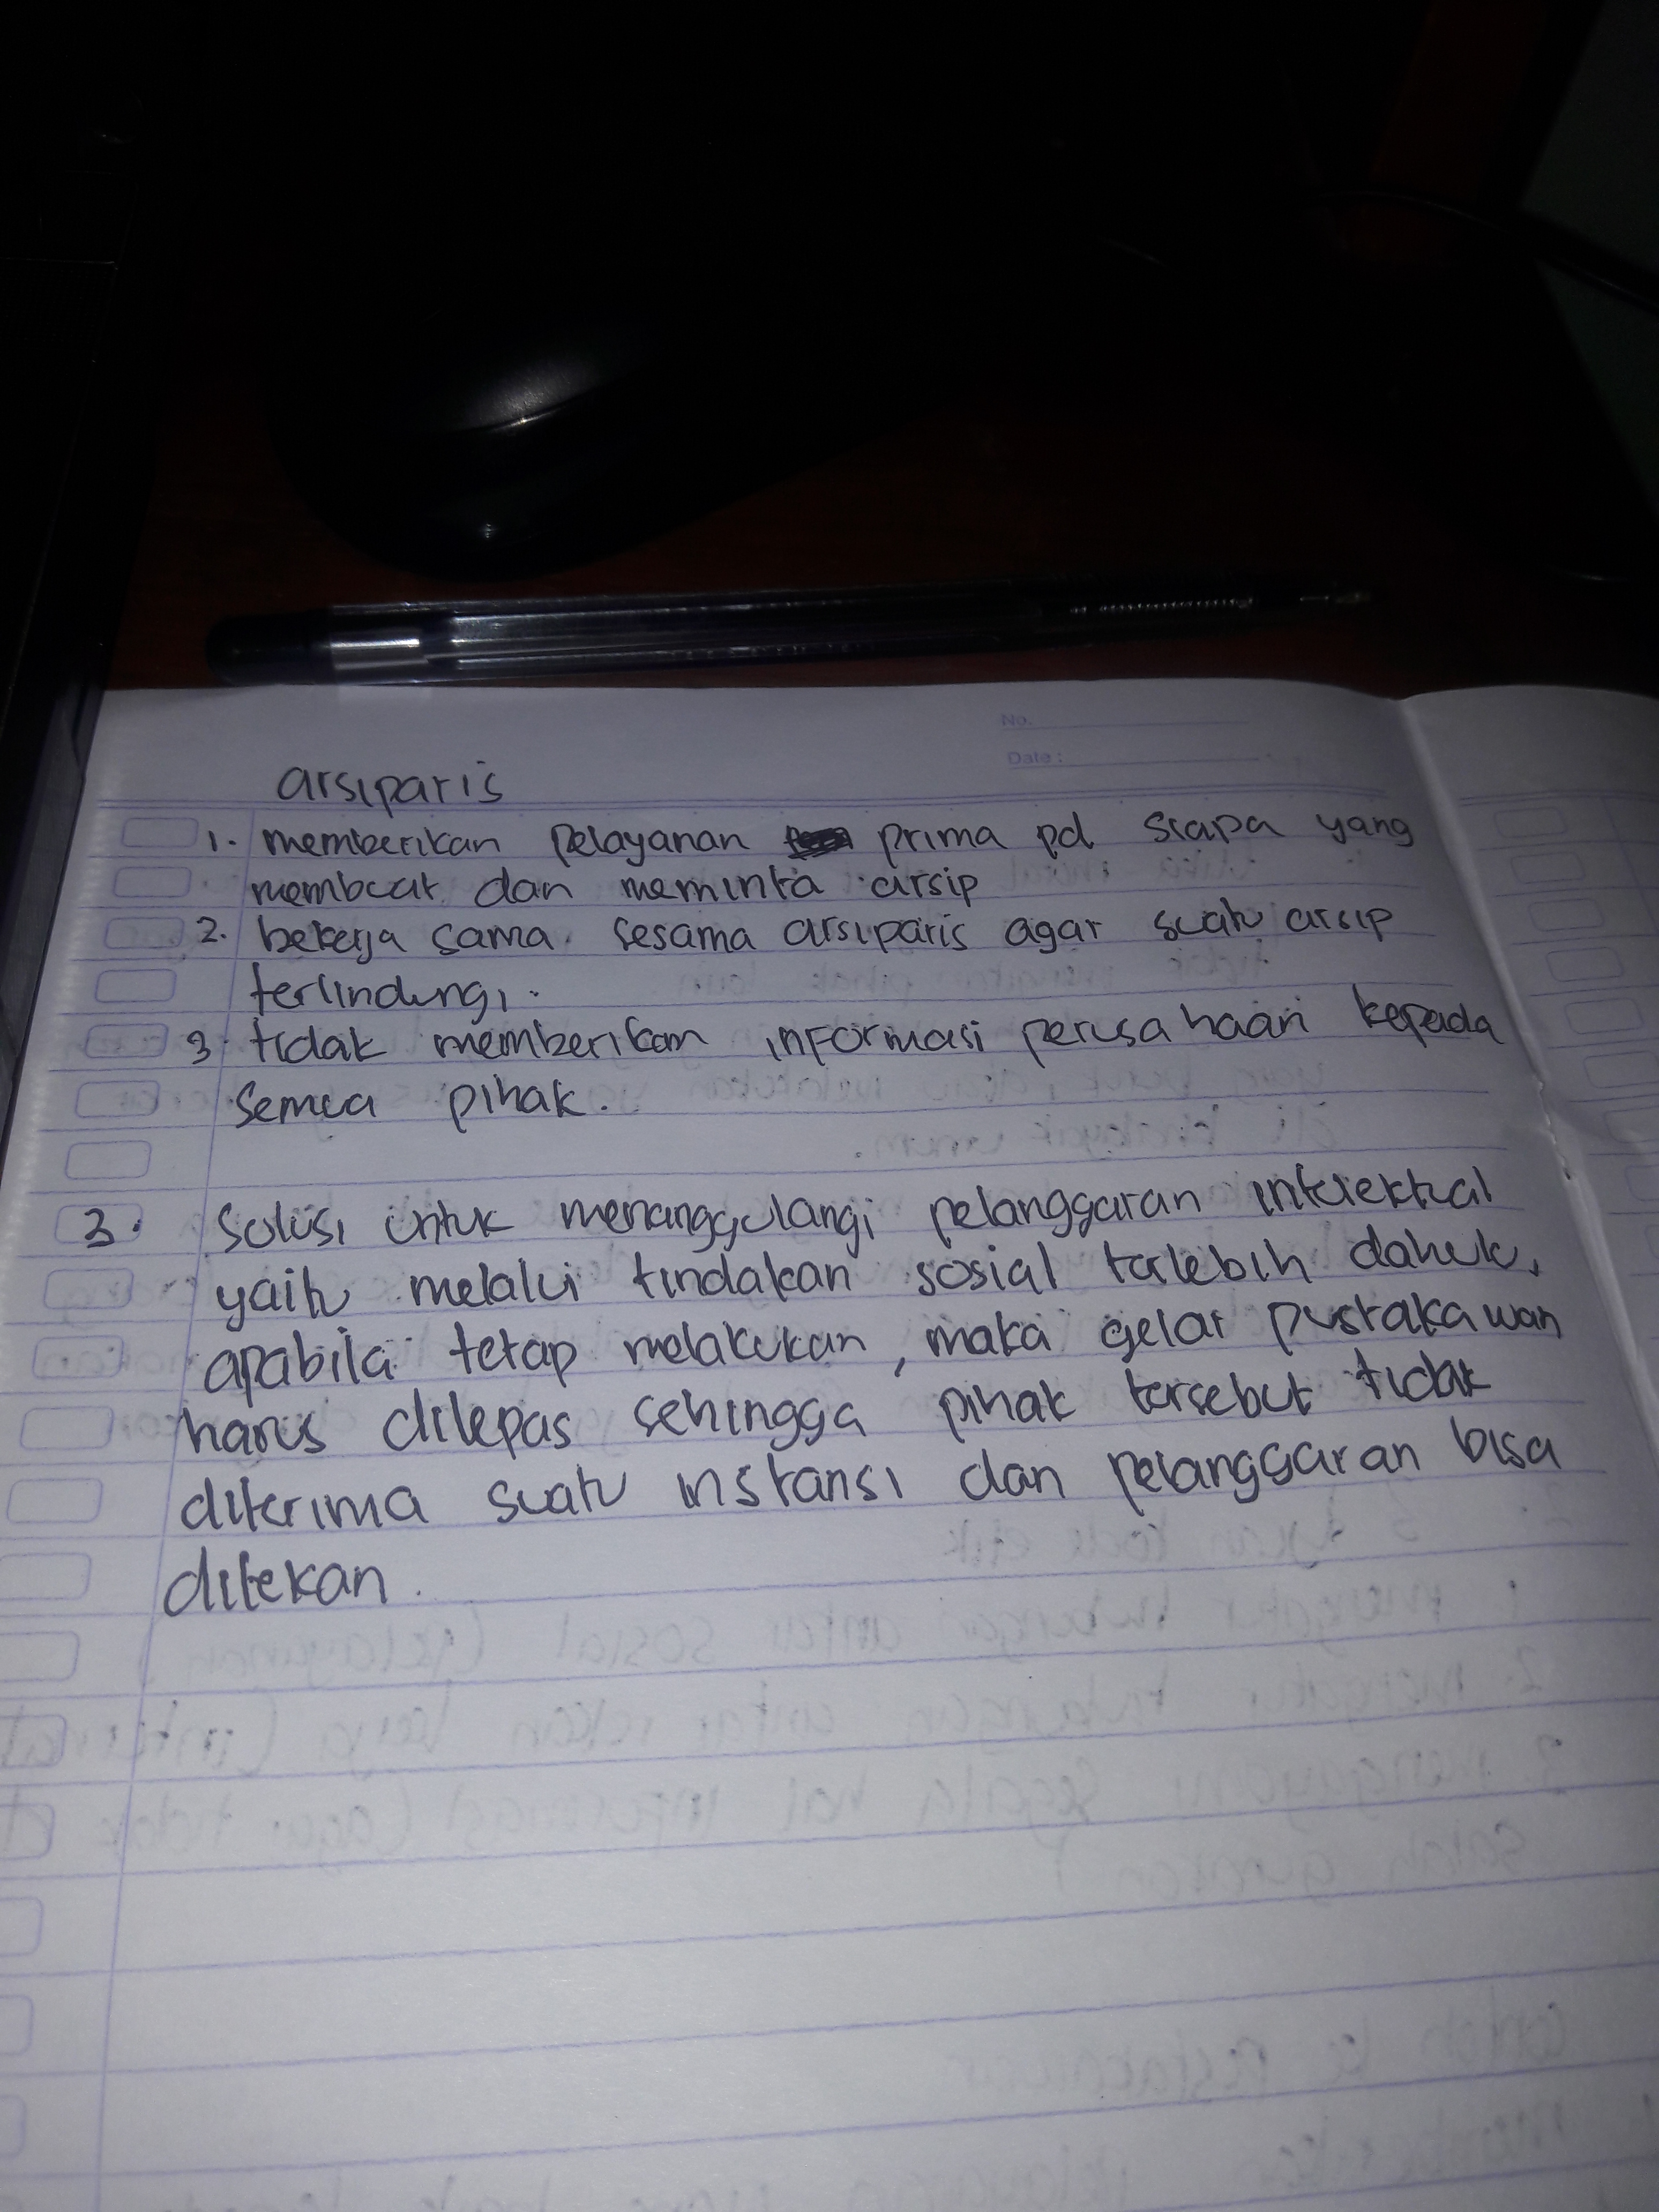 No.
Date :
arsiparis
1. memberikan pelayanan prima pd siapa yang
membuat dan meminta arsip
2. bekerja sama sesama arsiparis agar suatu arsip
terlindungi.
3. tidak memberikan informasi perusahaan kepada
semua pihak.
3. Solusi untuk menanggulangi pelanggaran intelektual
yaitu melalui tindakan sosial terlebih dahulu,
apabila tetap melakukan, maka gelar pustakawan
harus dilepas sehingga pihak tersebut tidak
diterima suatu instansi dan pelanggaran bisa
ditekan.